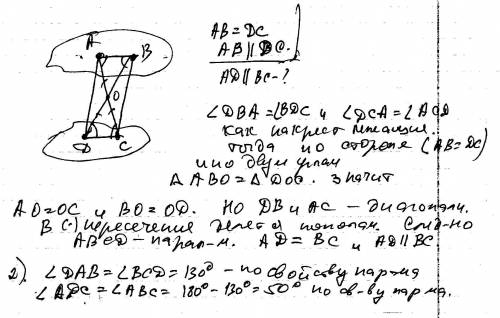 A B
O
D C
AB = DC
AB || DC.
AD || BC - ?
∠DBA = ∠BDC и ∠DCA = ∠ACD
как накрест лежащие.
тогда по стороне (AB = DC)
и по двум углам
△ABO = △DOC. значит
AO = OC и BO = OD. Но DB и AC - диагонали.
В (·) пересечения делятся пополам. След-но
ABCD - парал-м. AD = BC и AD || BC
2). ∠DAB = ∠BCD = 130° - по свойству пар-ма
∠ADC = ∠ABC = 180° - 130° = 50° по св-ву пар-ма.